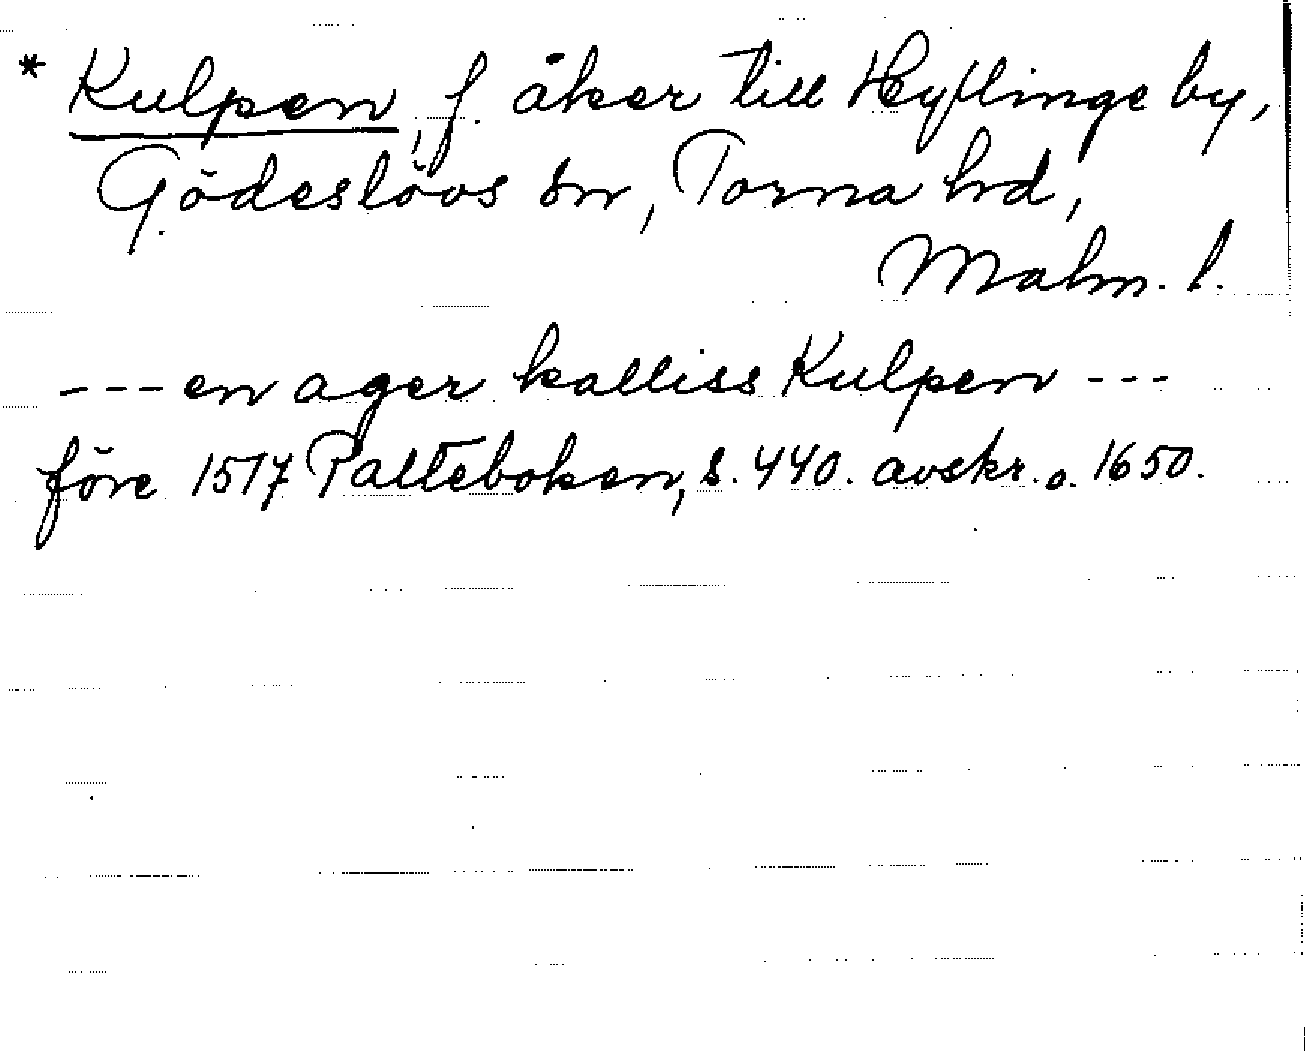 * Kulpen, f. åker till Heyflinge by,
Gödeslövs sn, Torna hd,
Malm. l.
--- en ager kalliss Kulpen ---
före 1517 Palteboken, s. 440. avskr. o. 1650.